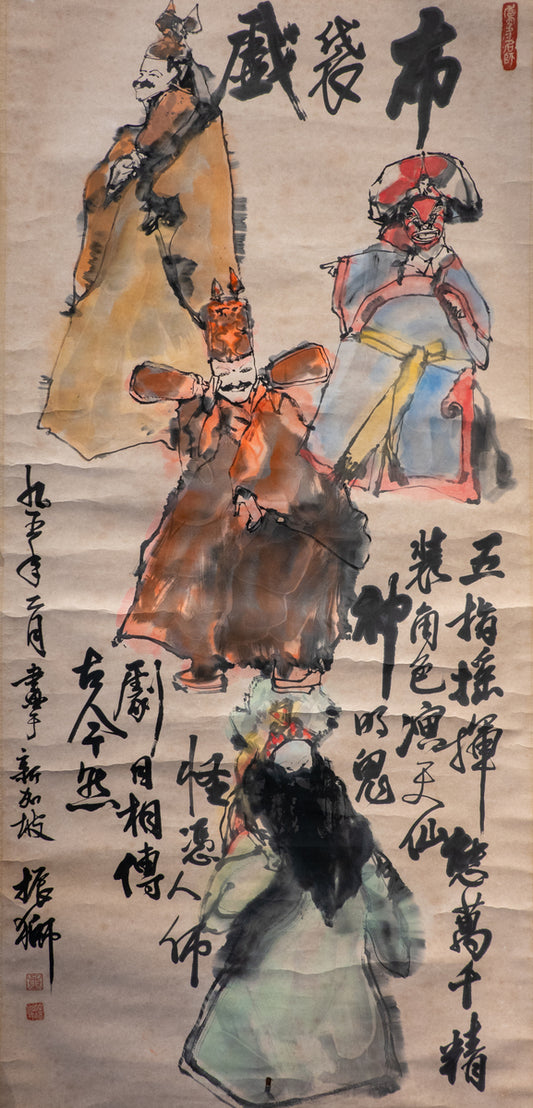 布袋戲
五指搖揮態萬千精
裝角色演天仙
神明鬼
怪憑人佈
劇目相傳
古今然
九五年二月 新加坡 振獅